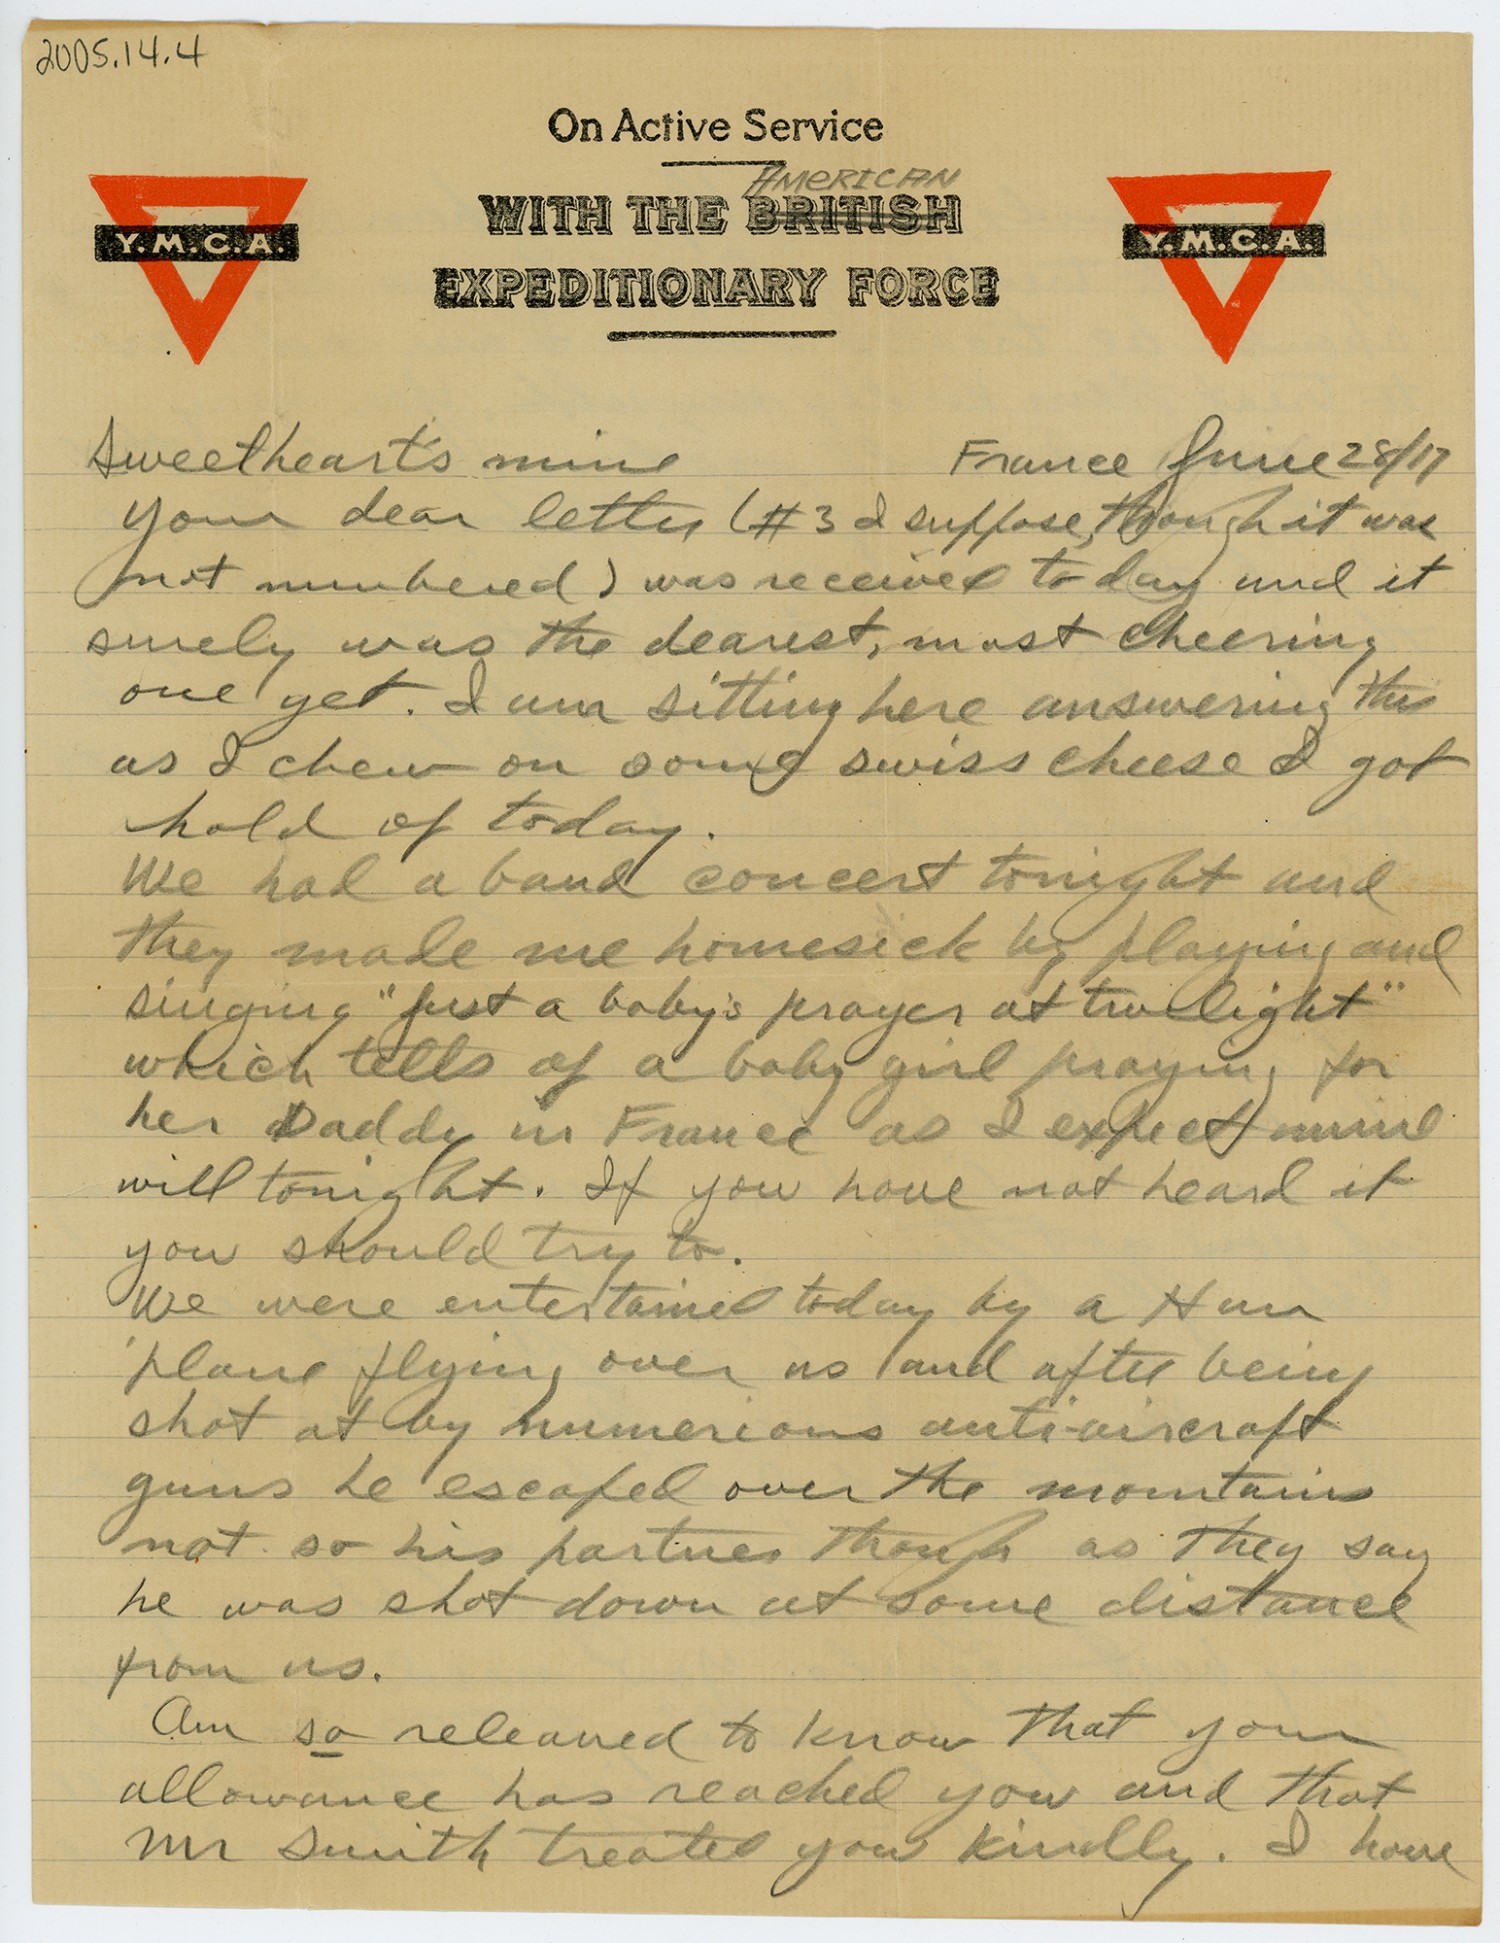 2005.14.4
On Active Service
AMERICAN
WITH THE BRITISH
Y.M.C.A.
Y.M.C.A.
EXPEDITIONARY FORCE
Sweethearts mine France June 28/17
Your dear letter (#3 I suppose, though it was
not numbered) was received today and it
surely was the dearest, most cheering
one yet. I am sitting here answering this
as I chew on some swiss cheese I got
hold of today.
We had a band concert tonight and
they made me homesick by playing and
singing "Just a baby's prayer at twilight"
which tells of a baby girl praying for
her Daddy in France as I expect mine
will tonight. If you have not heard it
you should try to.
We were entertained today by a Hun
plane flying over us and after being
shot at by numerious anti-aircraft
guns he escaped over the mountains
not so his partner though as they say
he was shot down at some distance
from us.
Am so releaved to know that your
allowance has reached you and that
Mr Smith treated you kindly. I have